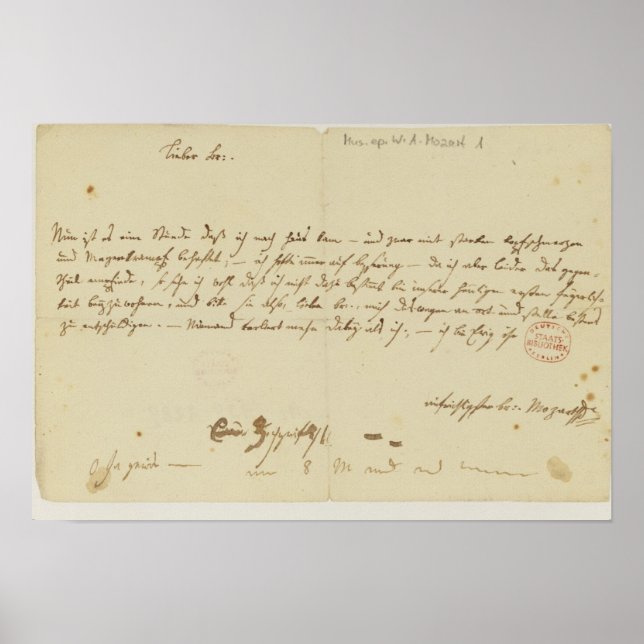 Mus. ep. W. A. Mozart 1
Lieber Br:.
Nun ist es eine Stunde daß ich nach Haus kam — und zwar mit starken Kopfschmerzen
und Magenkrampf behaftet; — ich hoffte immer auf Besserung — da ich aber leider das gegen-
theil empfinde, so sehe ich wohl daß ich nicht dazu bestimmt bin unserer heutigen ersten Feyerlich-
keit beyzuwohnen, und bitte sie also, lieber Br:., mich deswegen an ort und stelle bestens
zu entschuldigen. — Niemand verliert mehr dabey als ich:, — ich bin Ewig ihr
DEUTSCHE
STAATS-
BIBLIOTHEK
BERLIN
aufrichtigster Br:. Mozart
8